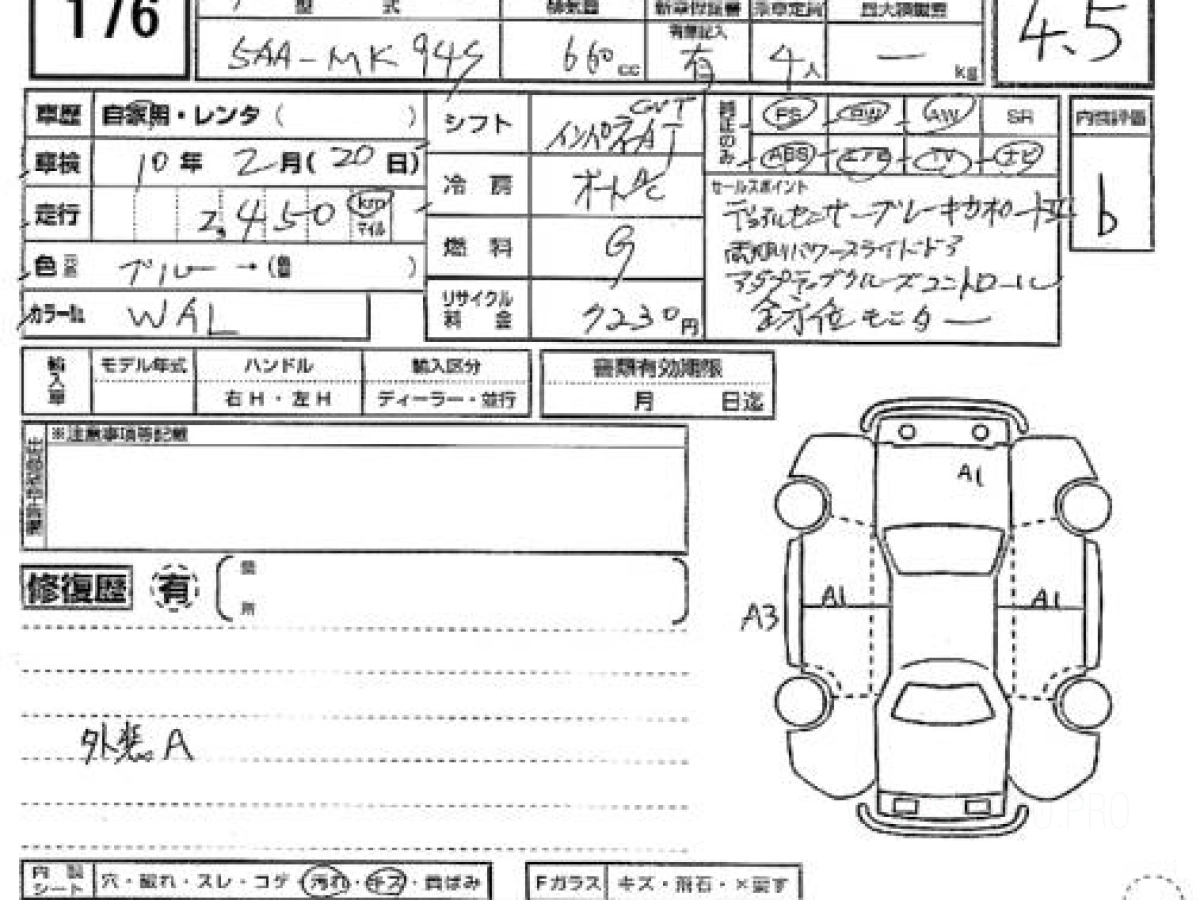 176
型 式 排気量 新車保証書 乗車定員 最大積載量
有無記入
5AA-MK94S 660cc 有 4人 ー kg
4.5
車歴 自家用・レンタ ( )
車検 10年 2月(20日)
走行 2,450 km マイル
色 元色 ブルー →(色替 )
カラーNo. WAL
シフト インパネAT CVT
冷房 オートAC
燃料 G
リサイクル料金 7230円
純正のみ PS PW AW SR
ABS エアB TV ナビ
セールスポイント
デュアルセンサーブレーキサポートII
両側パワースライドドア
アダプティブクルーズコントロール
全方位モニター
内装評価
b
輸入車 モデル年式 ハンドル 輸入区分
右H・左H ディーラー・並行
書類有効期限
月 日迄
※注意事項等記載
修復歴 有 箇所
外装A
A1
A1
A1
A3
内装シート 穴・破れ・スレ・コゲ・汚れ・キズ・黄ばみ
Fガラス キズ・飛石・×要す
O.PRO